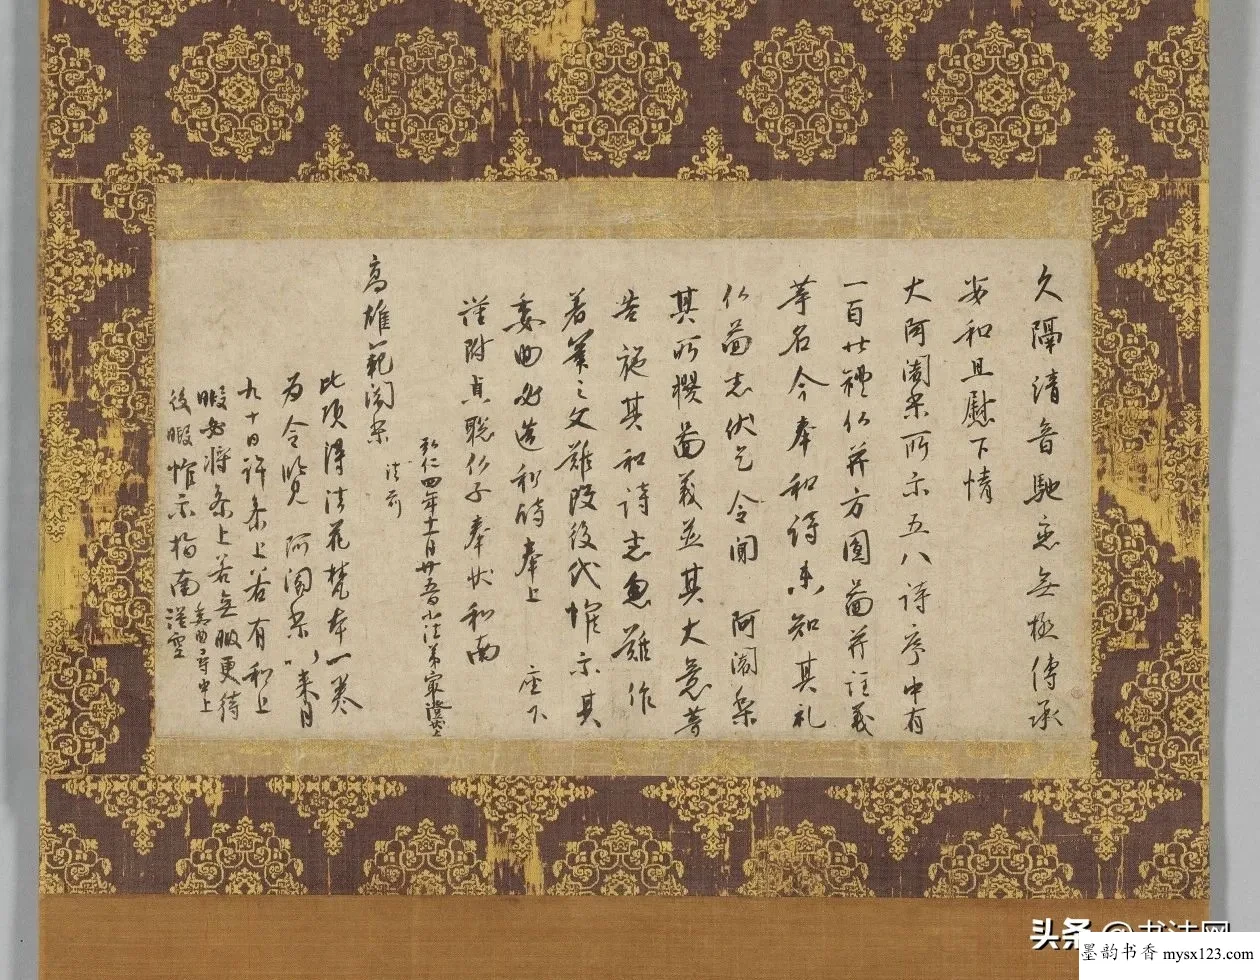 久隔清音馳恋無極傳承
安和且慰下情
大阿闍梨所示五八詩序中有
一百廿禮仏并方圓圖并註義
等名今奉和詩未知其礼
仏圖者伏乞令聞 阿闍梨
其所撰圖義並其大意等
告施其和詩者忽難作
著筆之文難改後代惟示其
委曲必造和詩奉上 座下
謹附貞聡仏子奉状和南
弘仁四年十一月廿五日小法弟最澄状上
高雄範闍梨 法前
此頃得法花梵本一巻
為令覧 阿闍梨以来月
九十日許参上若有和上
暇必将参上若無暇更待
後暇惟示指南謹空
头条 @书法网
墨韵书香 mysx123.com